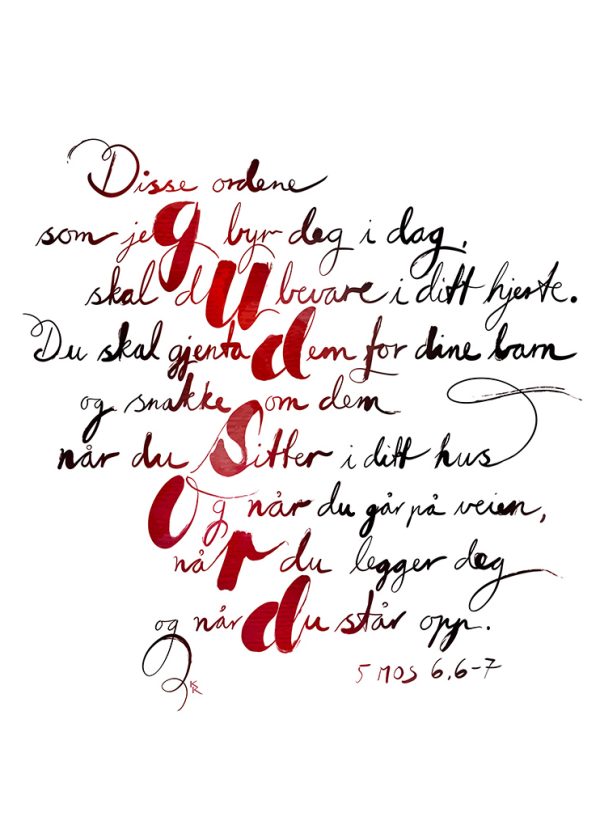 Disse ordene
som jeg byr deg i dag,
skal du bevare i ditt hjerte.
Du skal gjenta dem for dine barn
og snakke om dem
når du Sitter i ditt hus
Og når du går på veien,
når du legger deg
og når du står opp.
5 MOS 6.6-7